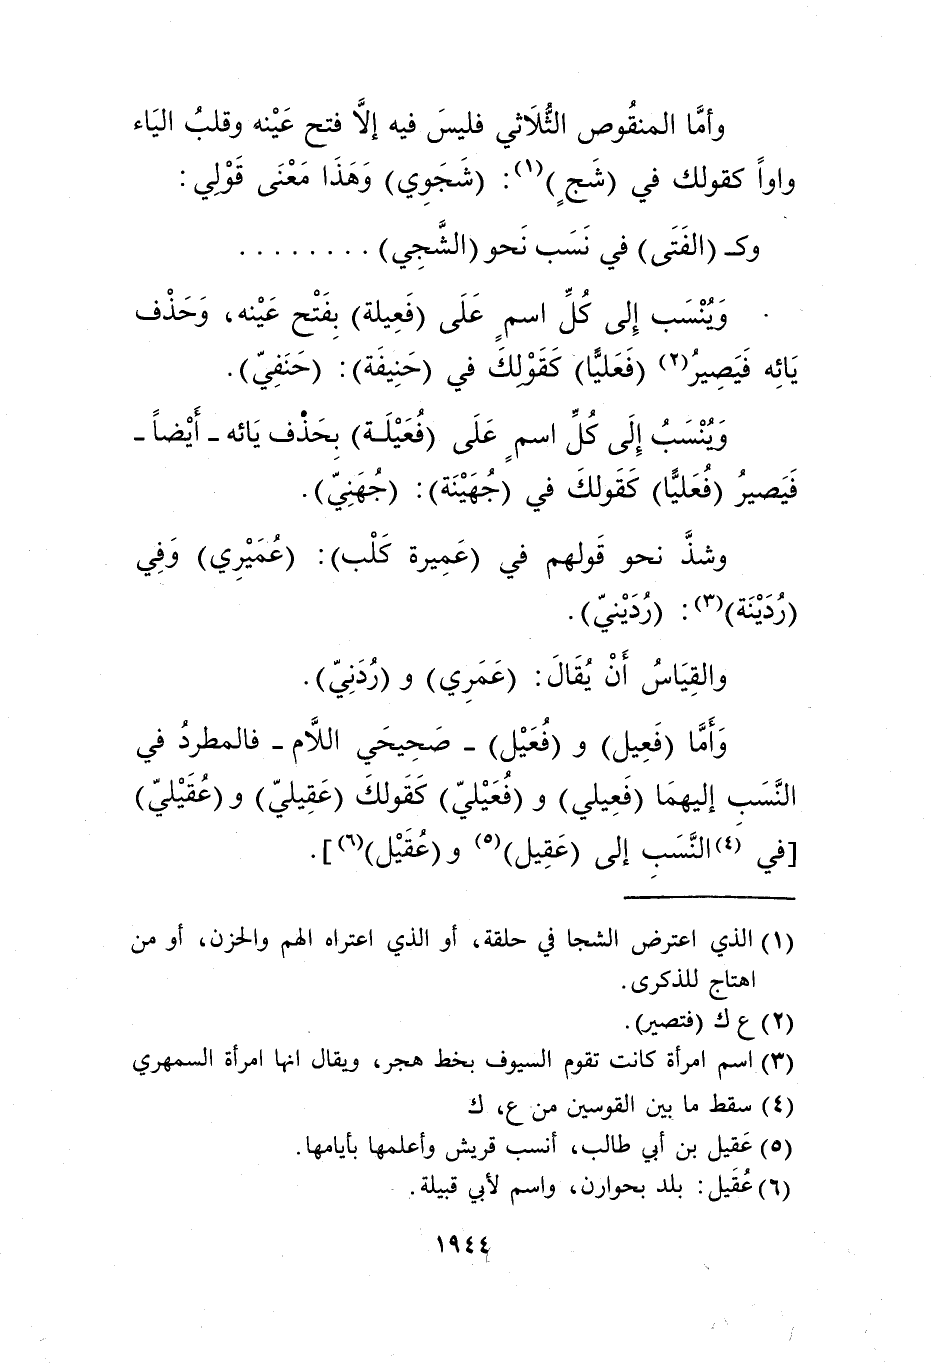 وأمَّا المنقُوص الثُّلَاثي فليسَ فيه إلَّا فتح عَيْنه وقلبُ اليَاء
واواً كقولك في (شَجٍ)(١): (شَجَوِي) وَهَذَا مَعْنَى قَوْلِي:
وكـ (الفَتَى) في نَسَب نَحو (الشَّجِي) . . . . . . . .
وَيُنْسَب إِلى كُلِّ اسمٍ عَلَى (فَعِيلة) بِفَتْح عَيْنه، وَحَذْف
يَائِه فَيَصِيرُ(٢) (فَعَليًّا) كَقَوْلِكَ في (حَنِيفَة): (حَنَفِيّ).
وَيُنْسَبُ إِلَى كُلِّ اسمٍ عَلَى (فُعَيْلَـة) بِحَذْف يَائه - أَيْضاً -
فَيَصيرُ (فُعَليًّا) كَقَولكَ في (جُهَيْنَة): (جُهَنِيّ).
وشذَّ نحو قَولهم في (عَمِيرة كَلْب): (عُمَيْرِي) وَفِي
(رُدَيْنَة)(٣): (رُدَيْنيّ).
والقِيَاسُ أَنْ يُقَالَ: (عَمَرِي) و (رُدَنِيّ).
وَأَمَّا (فَعِيل) و (فُعَيْل) - صَحِيحَي اللَّام - فالمطردُ في
النَّسَبِ إليهمَا (فَعِيلي) و (فُعَيْليّ) كَقَولكَ (عَقِيليّ) و (عُقَيْليّ)
[في (٤) النَّسَبِ إلى (عَقِيل)(٥) و (عُقَيْل)(٦)].
(١) الذي اعترض الشجا في حلقة، أو الذي اعتراه الهم والحزن، أو من
اهتاج للذكرى.
(٢) ع ك (فتصير).
(٣) اسم امرأة كانت تقوم السيوف بخط هجر، ويقال انها امرأة السمهري
(٤) سقط ما بين القوسين من ع، ك
(٥) عَقيل بن أبي طالب، أنسب قريش وأعلمها بأيامها.
(٦) عُقَيل: بلد بحوارن، واسم لأبي قبيلة.
١٩٤٤